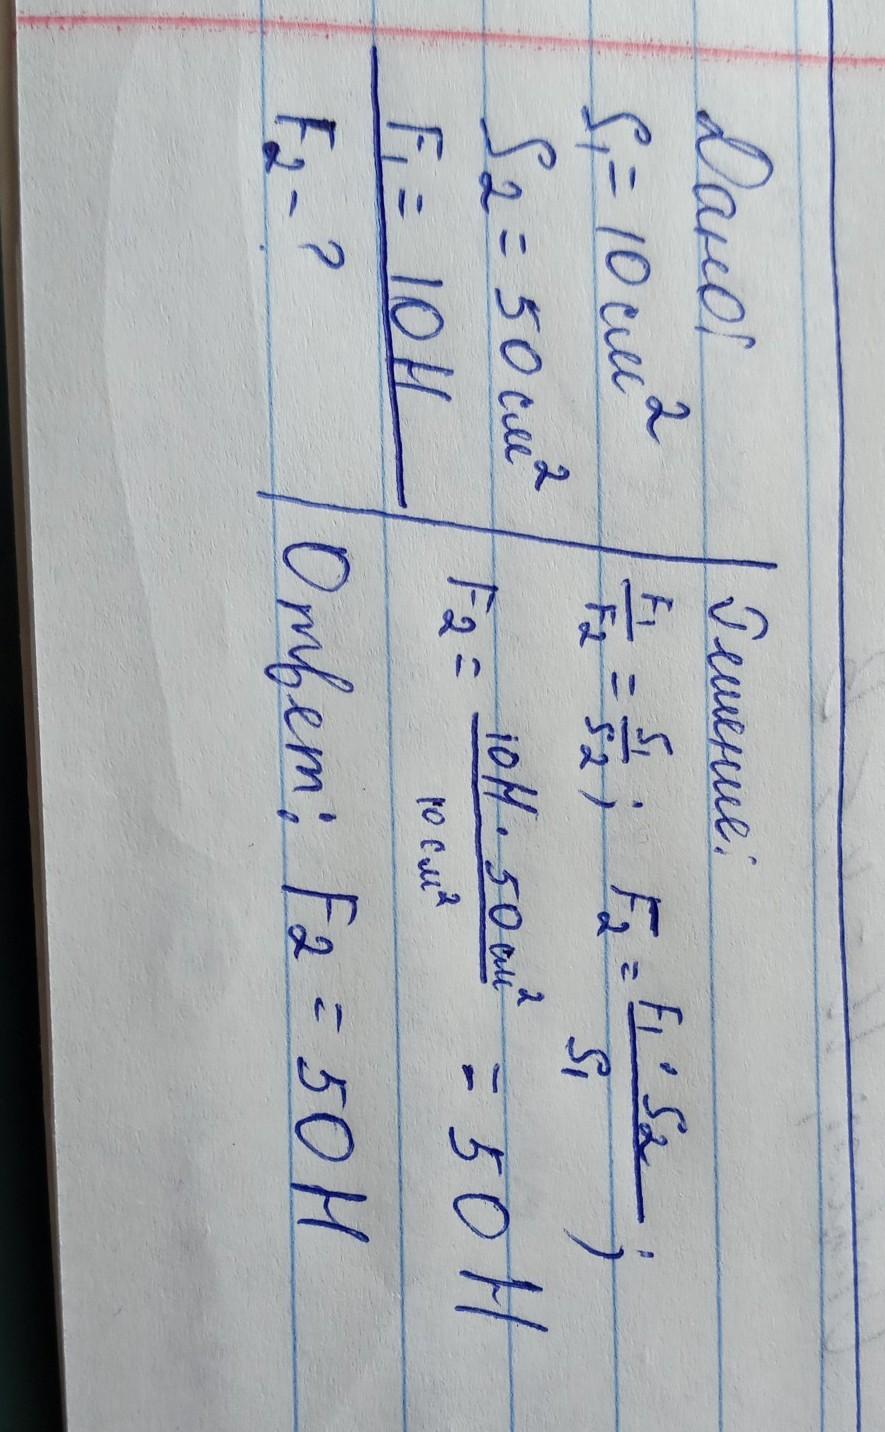 Дано:
S₁ = 10 см²
S₂ = 50 см²
F₁ = 10 Н
F₂ - ?
Решение:
F₁/F₂ = S₁/S₂; F₂ = F₁ · S₂ / S₁;
F₂ = 10 Н · 50 см² / 10 см² = 50 Н
Ответ: F₂ = 50 Н